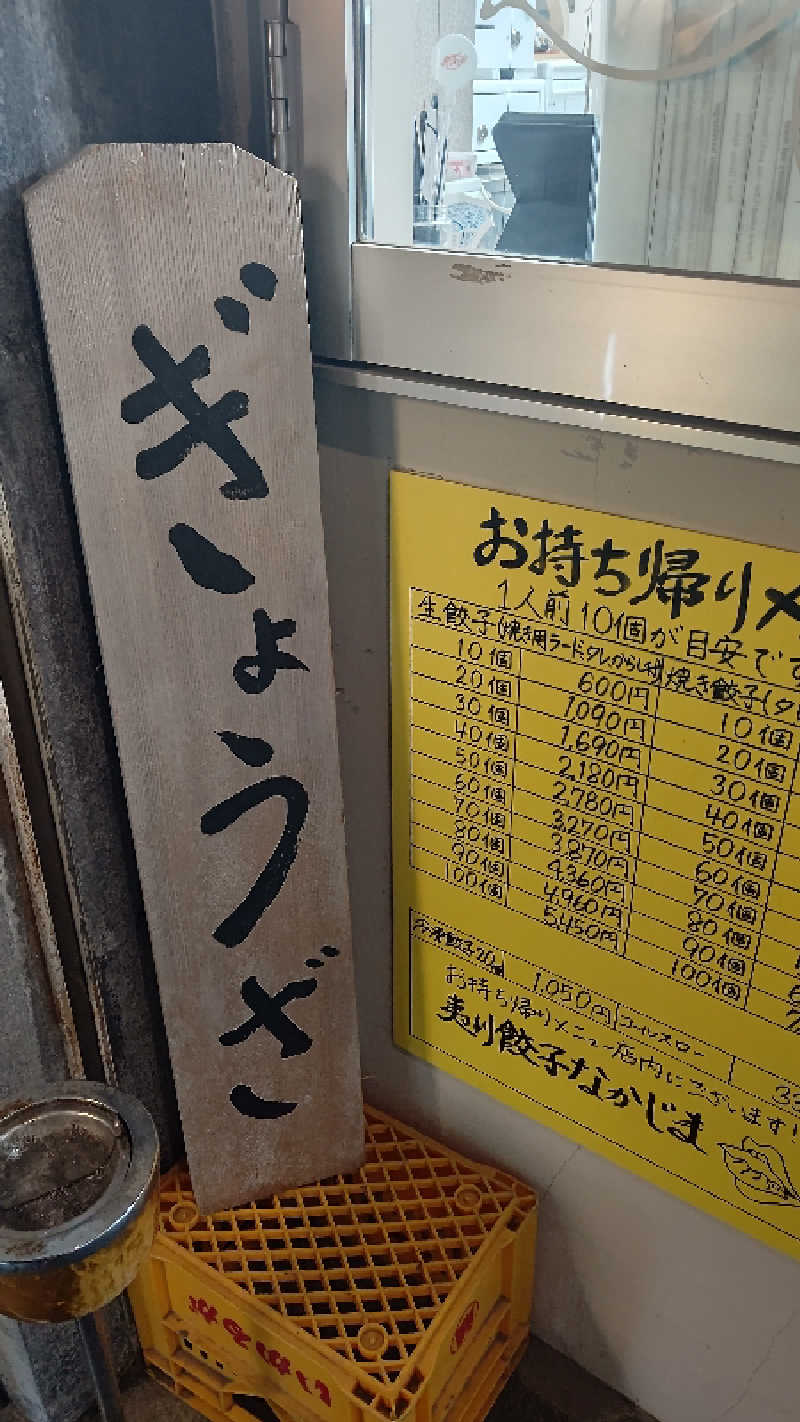 ぎょうざ
お持ち帰りメ
1人前10個が目安です
生餃子(焼き用ラード、タレ、からし付) 焼き餃子(タレ
10個 600円 10個
20個 1,090円 20個
30個 1,690円 30個
40個 2,180円 40個
50個 2,780円 50個
60個 3,270円 60個
70個 3,870円 70個
80個 4,360円 80個
90個 4,960円 90個
100個 5,450円 100個
冷凍餃子20個 1,050円 コールスロー 33
お持ち帰りメニュー店内にございます!
餃子なかじま
いかるが